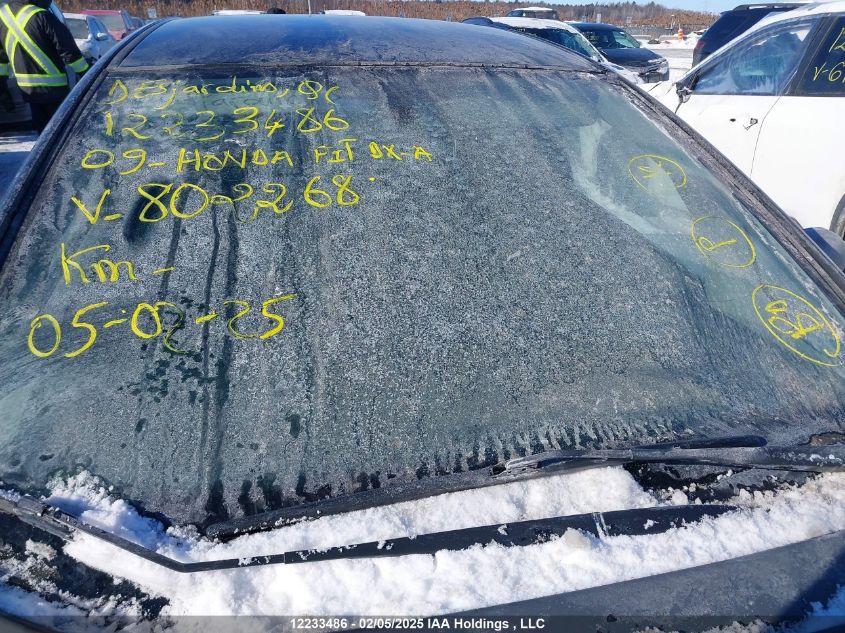 Desjardins, Qc
12233486
09-HONDA FIT DX-A
V-802268
Km-
05-02-25
P
12233486 - 02/05/2025 IAA Holdings , LLC